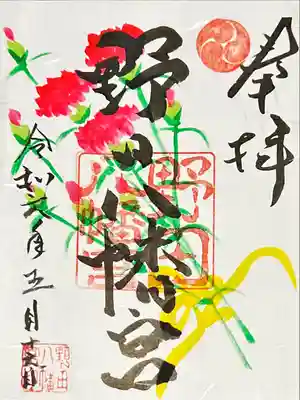 奉拝
野田八幡宮
野田八幡宮
令和六年五月
野田八幡宮